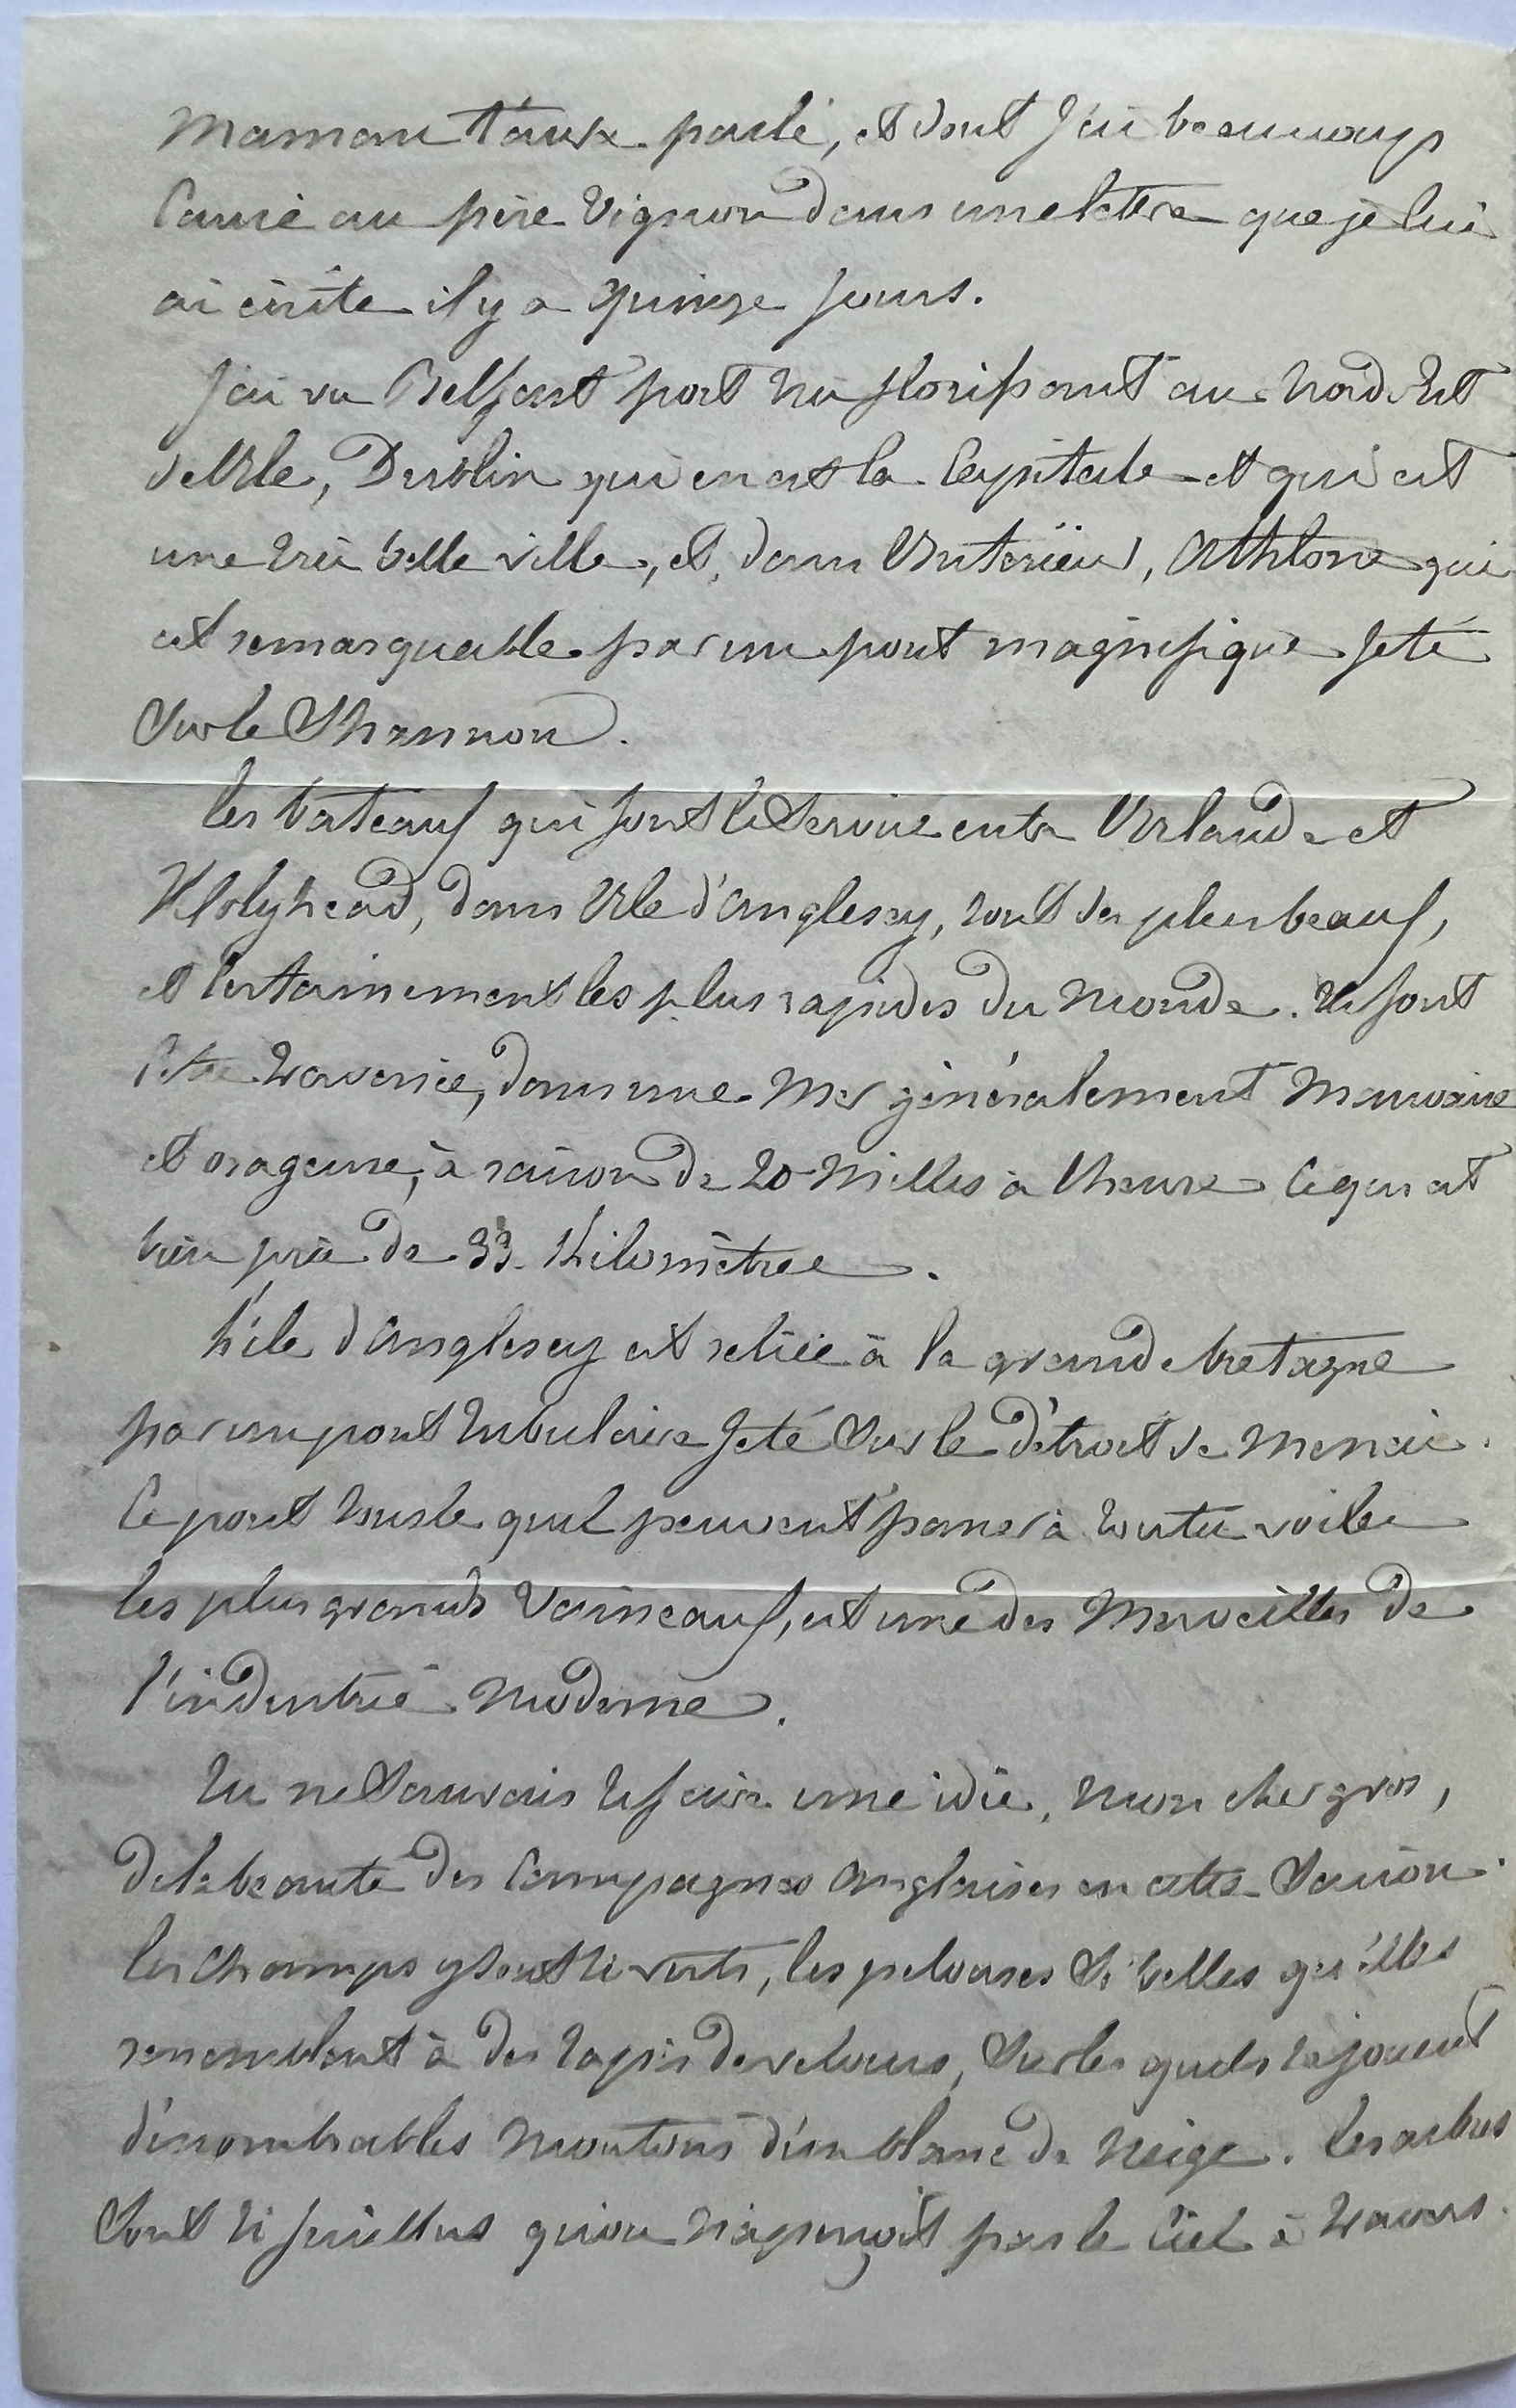 Maman t'aura parlé, et dont j'ai beaucoup
causé au père Vignon dans une lettre que je lui
ai écrite il y a quinze jours.
J'ai vu Belfast port très florissant au Nord Est
de l'Ile, Dublin qui en est la Capitale et qui est
une très belle ville, et, dans l'Intérieur, Athlone qui
est remarquable par un pont magnifique jeté
sur le Shannon.
Les bateaux qui font le service entre l'Irlande et
Holyhead, dans l'Ile d'Anglesey, sont des plus beaux,
et certainement les plus rapides du monde. Ils font
cette traversée, dans une mer généralement mauvaise
et orageuse, à raison de 20 milles à l'heure ce qui est
bien près de 33 Kilomètres.
L'ile d'Anglesey est reliée à la grande bretagne
par un pont tubulaire jeté sur le détroit de Menai.
Ce pont sous le quel peuvent passer à toutes voiles
les plus grands vaisseaux, est une des merveilles de
l'industrie moderne.
Tu ne saurais te faire une idée, mon cher gros,
de la beauté des campagnes anglaises en cette saison.
les champs y sont si verts, les pelouses si belles qu'elles
ressemblent à des tapis de velours, sur les quels se jouent
d'inombrables moutons d'un blanc de neige. Les arbres
sont si feuillus qu'on n'aperçoit pas le ciel à travers.